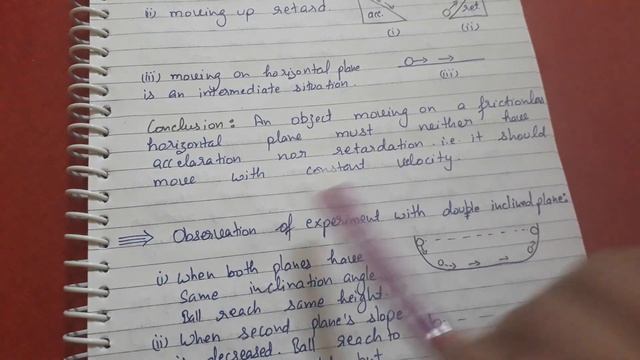 ii) moving up retard
acc.
(i)
ret
(ii)
(iii) moving on horizontal plane
is an intermediate situation.
(iii)
Conclusion: An object moving on a frictionless
horizontal plane must neither have
accelaration nor retardation i.e. it should
move with constant velocity.
Observation of experiment with double inclined plane:
i) When both planes have
Same inclination angle
Ball reach same height.
(ii) When second plane's slope
decreased. Ball reach to
but